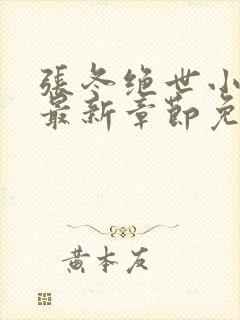 張冬绝世小
最新章節免
黄本友